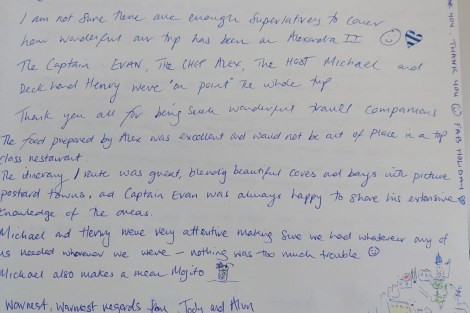 I am not sure there are enough superlatives to cover
how wonderful our trip has been on Alexandra II
The Captain EVAN, The CHEF ALEX, The HOST Michael and
Deck hand Henry were "on point" the whole trip
Thank you all for being such wonderful travel companions
The food prepared by Alex was excellent and would not be out of place in a top
class restaurant.
The itinerary / route was great, blending beautiful coves and bays with picture
postcard towns, and Captain Evan was always happy to share his extensive
knowledge of the areas.
Michael and Henry were very attentive making sure we had whatever any of
us needed wherever we were – nothing was too much trouble
Michael also makes a mean Mojito
Warmest, warmest regards from Jody and Alun
THANK YOU FAB HOLIDAY